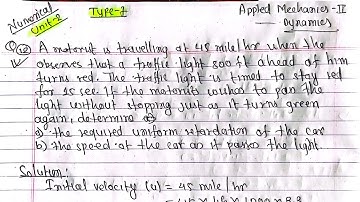 Numerical
Unit-2
Type-I
Applied Mechanics-II
Dynamics
Q. 12) A motorist is travelling at 45 mile/hr when the
observes that a traffic light 800 ft ahead of him
turns red. The traffic light is timed to stay red
for 15 sec. If the motorist wishes to pass the
light without stopping just as it turns green
again, determine
a) the required uniform retardation of the car
b) the speed of the car as it passes the light.
Solution:
Initial velocity (u) = 45 mile/hr